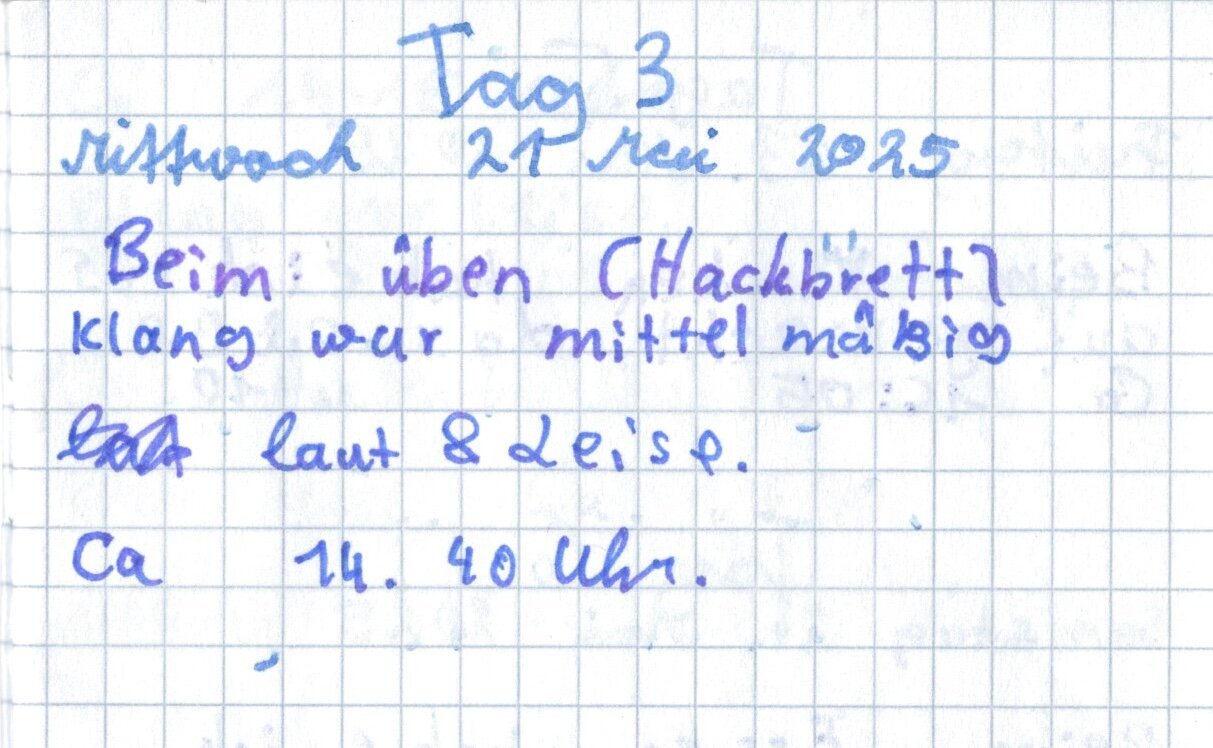 Tag 3
Mittwoch 21 Mai 2025
Beim: üben (Hackbrett)
Klang war mittelmäßig
laut & Leise.
Ca 14. 40 Uhr.